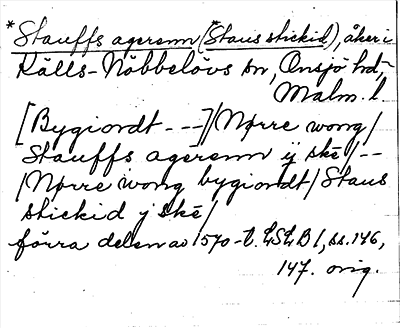 *Stauffs agerenn (Staus stickid), åker i
Källs-Nöbbelövs sn, Onsjö hd,
Malm. l.
[Bygiordt ---]/Nørre wong/
Stauffs agerenn ÿ skė/--
/Nørre wong bygiordt/Staus
stickid ÿ skė/
förra delen av 1570-t. LSLB 1, ss. 146,
147. orig.